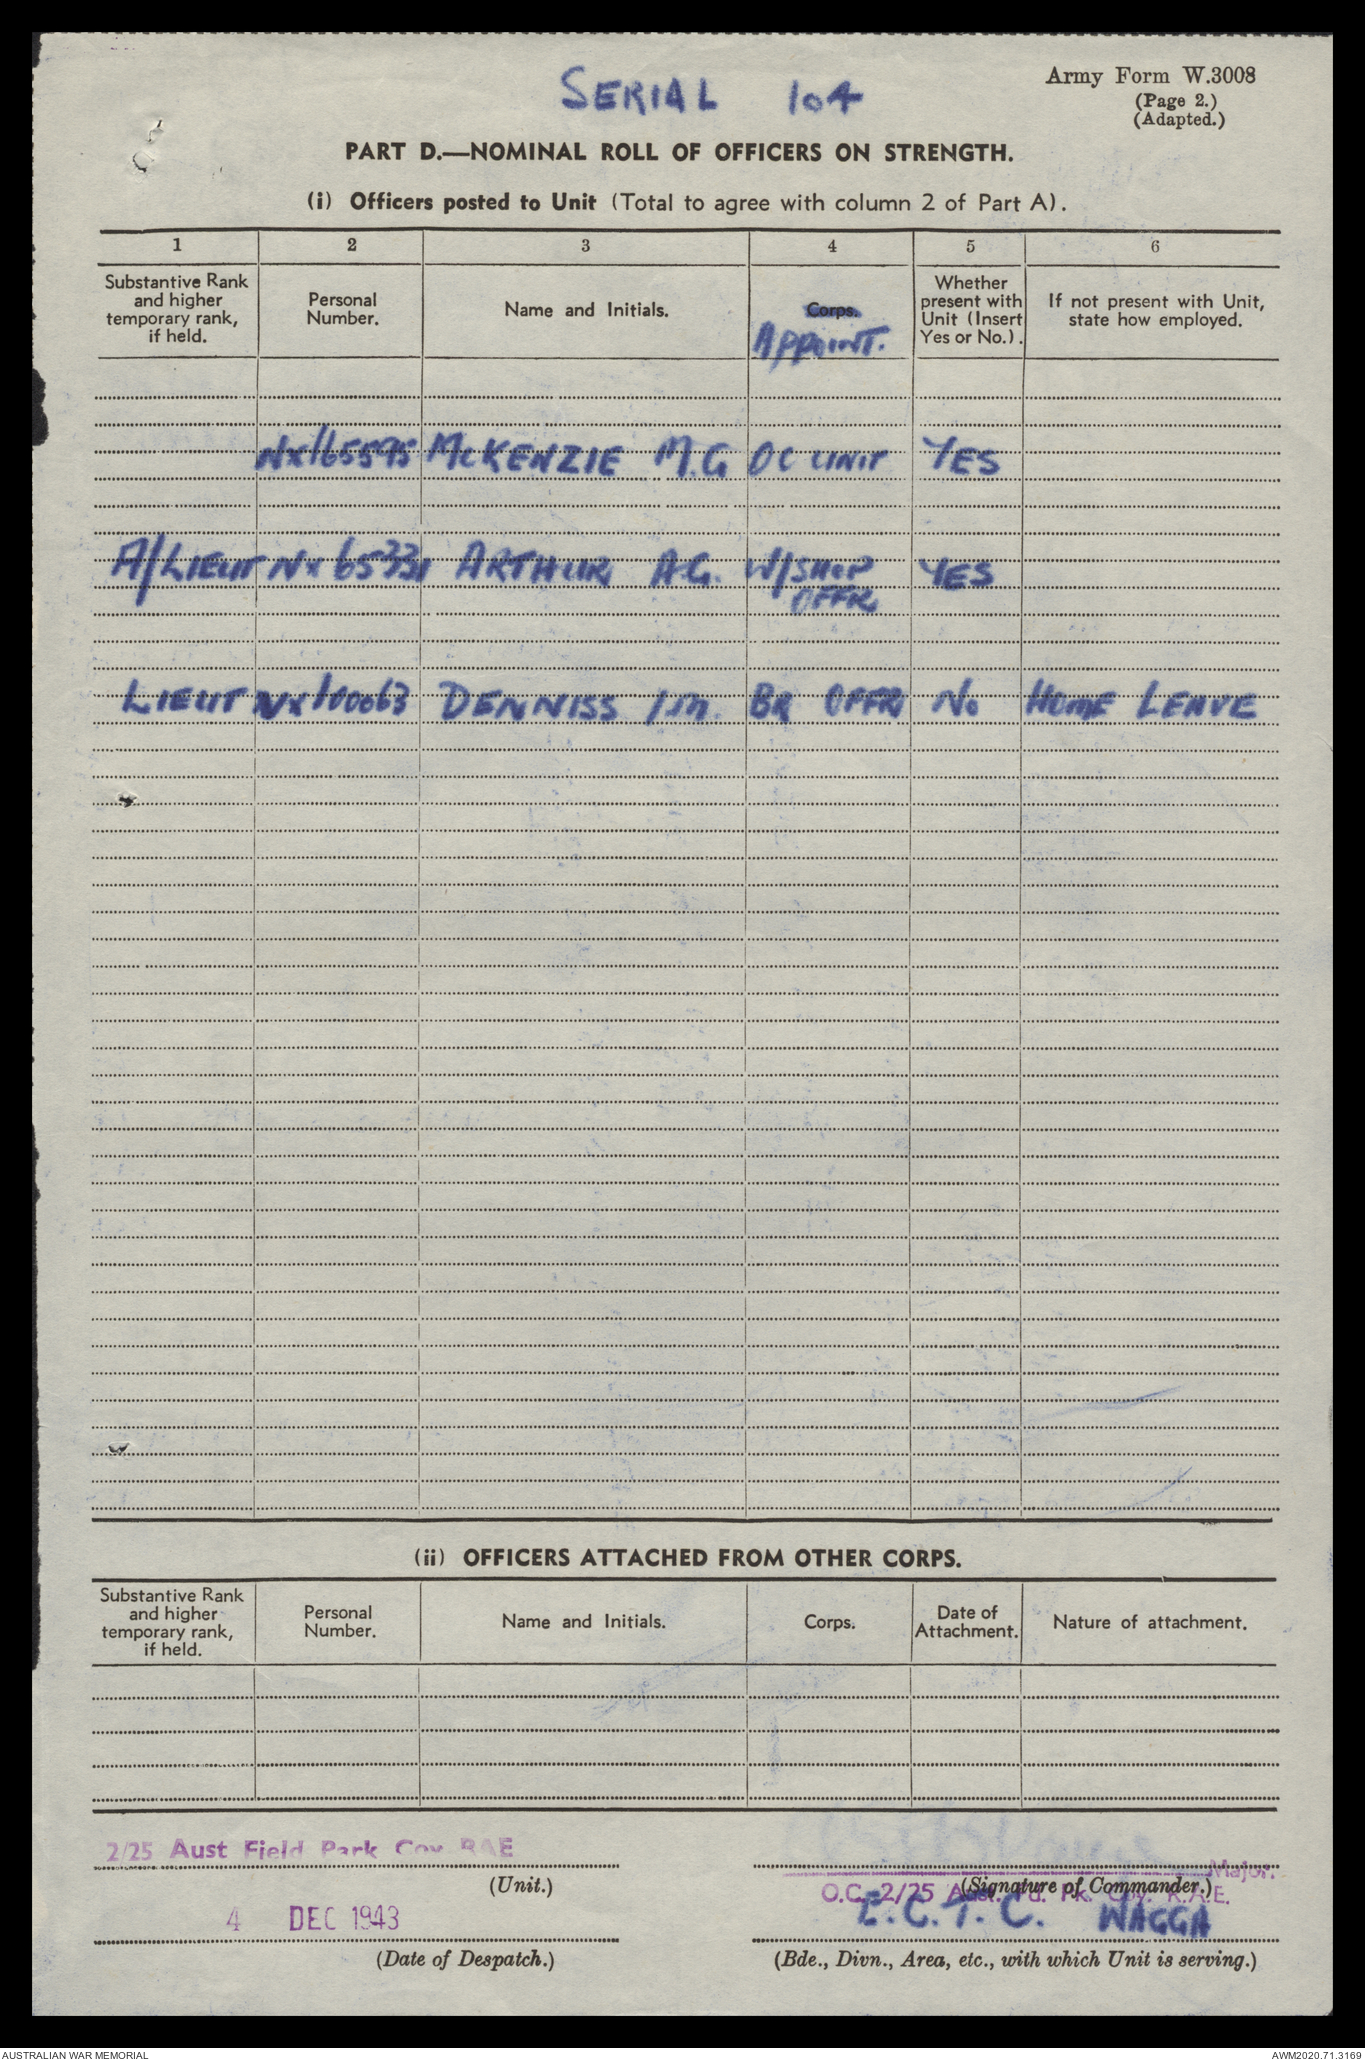 SERIAL 104
Army Form W.3008
(Page 2.)
(Adapted.)
PART D.—NOMINAL ROLL OF OFFICERS ON STRENGTH.
(i) Officers posted to Unit (Total to agree with column 2 of Part A).
1 2 3 4 5 6
Substantive Rank and higher temporary rank, if held.
Personal Number.
Name and Initials.
Corps.
APPOINT.
Whether present with Unit (Insert Yes or No.).
If not present with Unit, state how employed.
NX165595 McKENZIE M.G OC UNIT YES
A/LIEUT NX65331 ARTHUR A.G. W/SHOP OFFR YES
LIEUT NX100063 DENNISS I.M. BR OFFR No HOME LEAVE
(ii) OFFICERS ATTACHED FROM OTHER CORPS.
Substantive Rank and higher temporary rank, if held.
Personal Number.
Name and Initials.
Corps.
Date of Attachment.
Nature of attachment.
2/25 Aust Field Park Coy RAE
(Unit.)
Major.
(Signature of Commander.)
O.C. 2/25 Aust. Fd. Pk. Coy. R.A.E.
4 DEC 1943
E.C.T.C. WAGGA
(Date of Despatch.)
(Bde., Divn., Area, etc., with which Unit is serving.)
AUSTRALIAN WAR MEMORIAL
AWM2020.71.3169